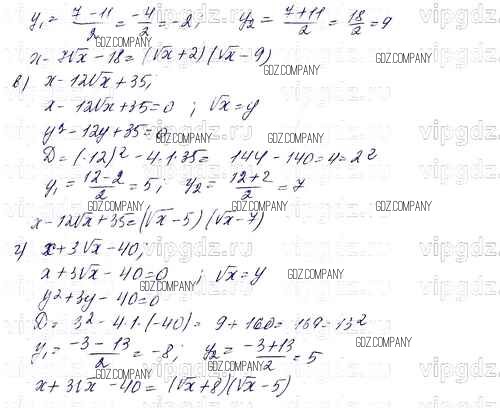 y₁ = (7 − 11)/2 = −4/2 = −2; y₂ = (7 + 11)/2 = 18/2 = 9
x − 7√x − 18 = (√x + 2)(√x − 9)
в) x − 12√x + 35;
x − 12√x + 35 = 0 ; √x = y
y² − 12y + 35 = 0
D = (−12)² − 4·1·35 = 144 − 140 = 4 = 2²
y₁ = (12 − 2)/2 = 5; y₂ = (12 + 2)/2 = 7
x − 12√x + 35 = (√x − 5)(√x − 7)
г) x + 3√x − 40;
x + 3√x − 40 = 0 ; √x = y
y² + 3y − 40 = 0
D = 3² − 4·1·(−40) = 9 + 160 = 169 = 13²
y₁ = (−3 − 13)/2 = −8; y₂ = (−3 + 13)/2 = 5
x + 3√x − 40 = (√x + 8)(√x − 5)
GDZ.COMPANY
vipgdz.ru